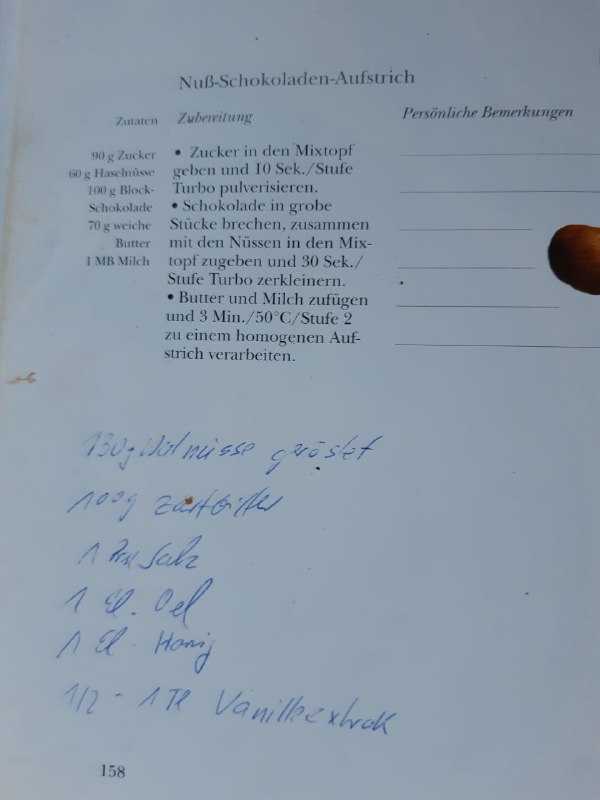 Nuß-Schokoladen-Aufstrich
Zutaten
90 g Zucker
60 g Haselnüsse
100 g Block-
Schokolade
70 g weiche
Butter
1 MB Milch
Zubereitung
• Zucker in den Mixtopf
geben und 10 Sek./Stufe
Turbo pulverisieren.
• Schokolade in grobe
Stücke brechen, zusammen
mit den Nüssen in den Mix-
topf zugeben und 30 Sek./
Stufe Turbo zerkleinern.
• Butter und Milch zufügen
und 3 Min./50°C/Stufe 2
zu einem homogenen Auf-
strich verarbeiten.
Persönliche Bemerkungen
130g Walnüsse geröstet
100g zartbitter
1 Pri Salz
1 El. Oel
1 El. Honig
1/2 - 1 Tl Vanilleextrakt
158